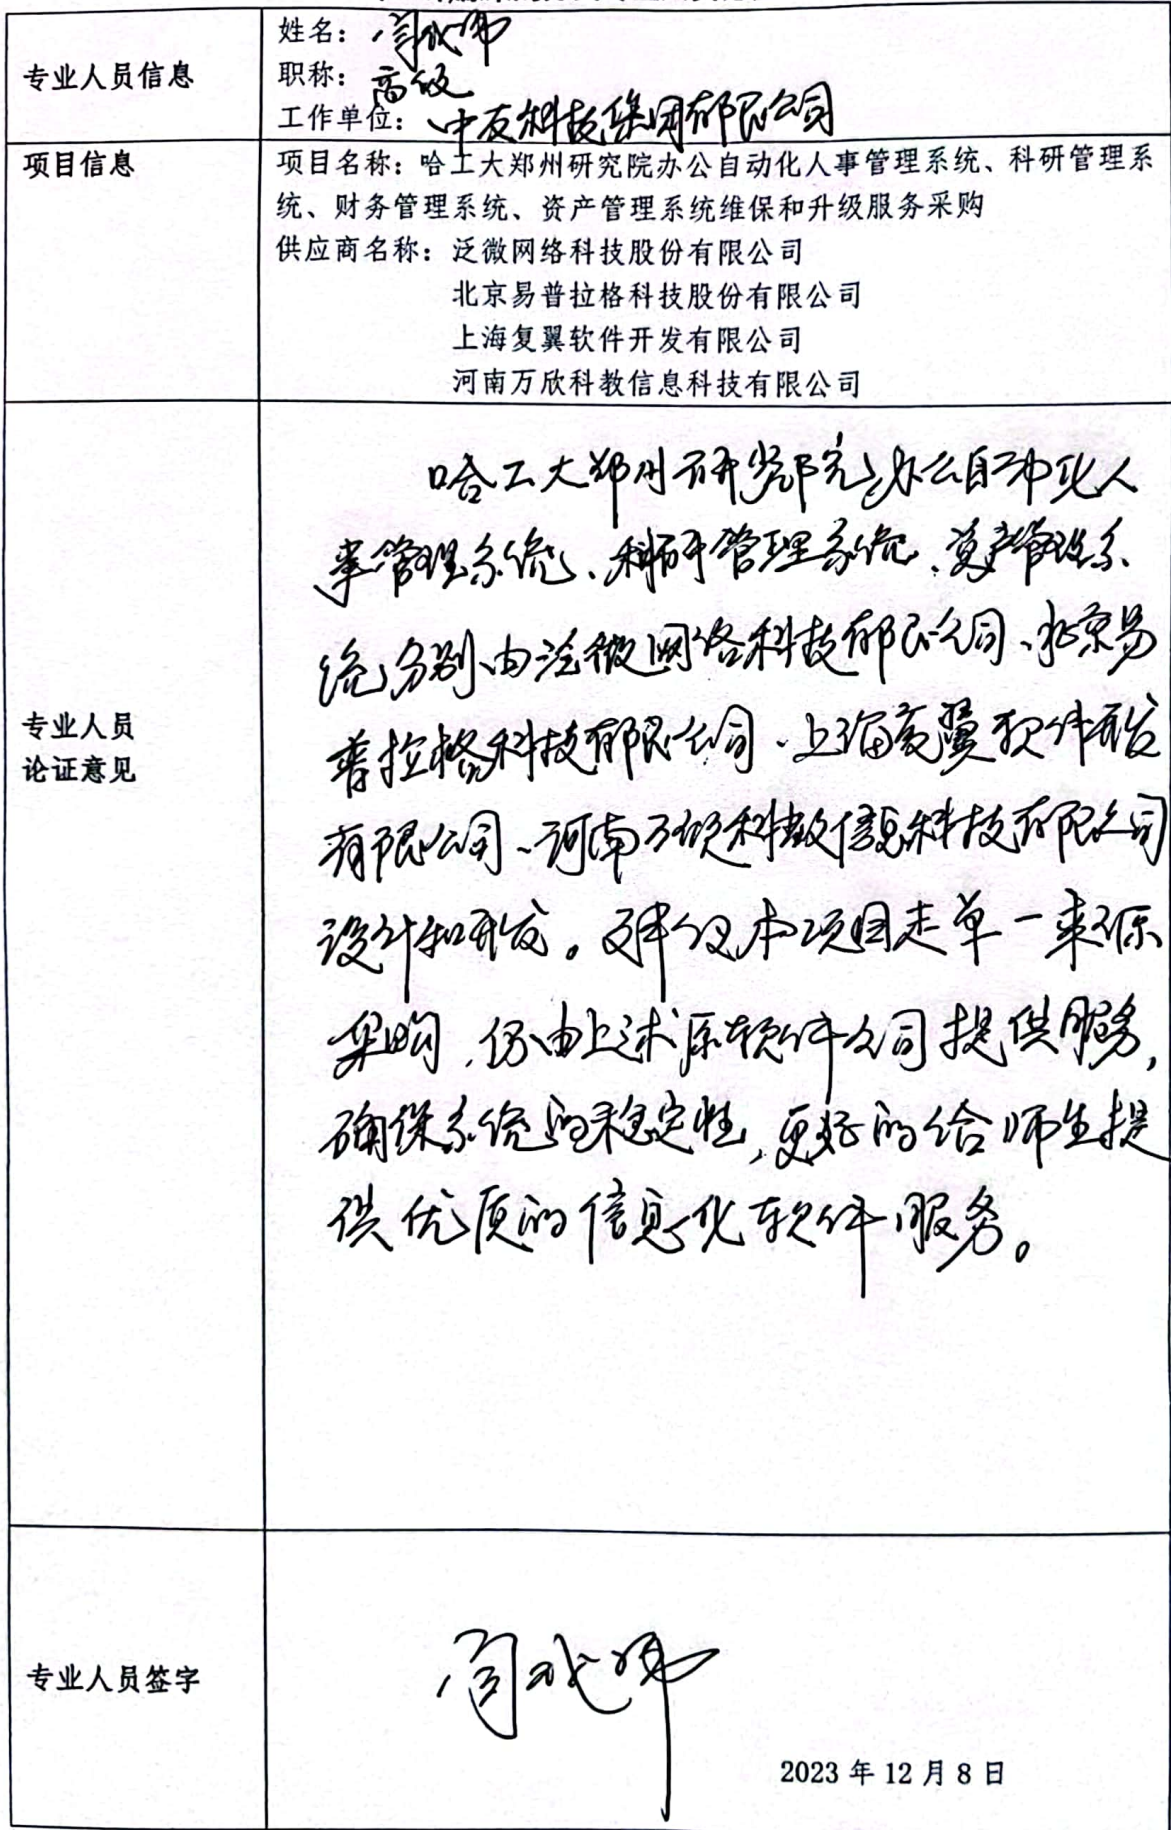 专业人员信息
姓名：闫成伟
职称：高级
工作单位：中友科技集团有限公司
项目信息
项目名称：哈工大郑州研究院办公自动化人事管理系统、科研管理系
统、财务管理系统、资产管理系统维保和升级服务采购
供应商名称：泛微网络科技股份有限公司
北京易普拉格科技股份有限公司
上海复翼软件开发有限公司
河南万欣科教信息科技有限公司
专业人员
论证意见
哈工大郑州研究院办公自动化人
事管理系统、科研管理系统、资产管理系
统分别由泛微网络科技有限公司、北京易
普拉格科技有限公司、上海复翼软件开发
有限公司、河南万欣科教信息科技有限公司
设计和开发。建议本项目走单一来源
采购，仍由上述原软件公司提供服务，
确保系统的稳定性，更好的给师生提
供优质的信息化软件服务。
专业人员签字
闫成伟
2023年12月8日